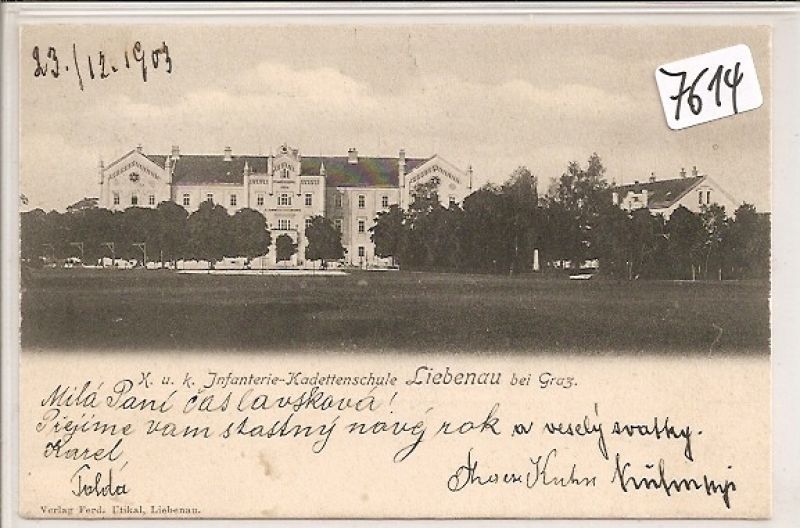 23./12.1903
7614
K. u. k. Infanterie-Kadettenschule Liebenau bei Graz.
Milá Paní Čáslavsková!
Přejíme vam stastný nový rok a veselý svatky.
Karel
Kuhn
Verlag Ferd. Utikal, Liebenau.